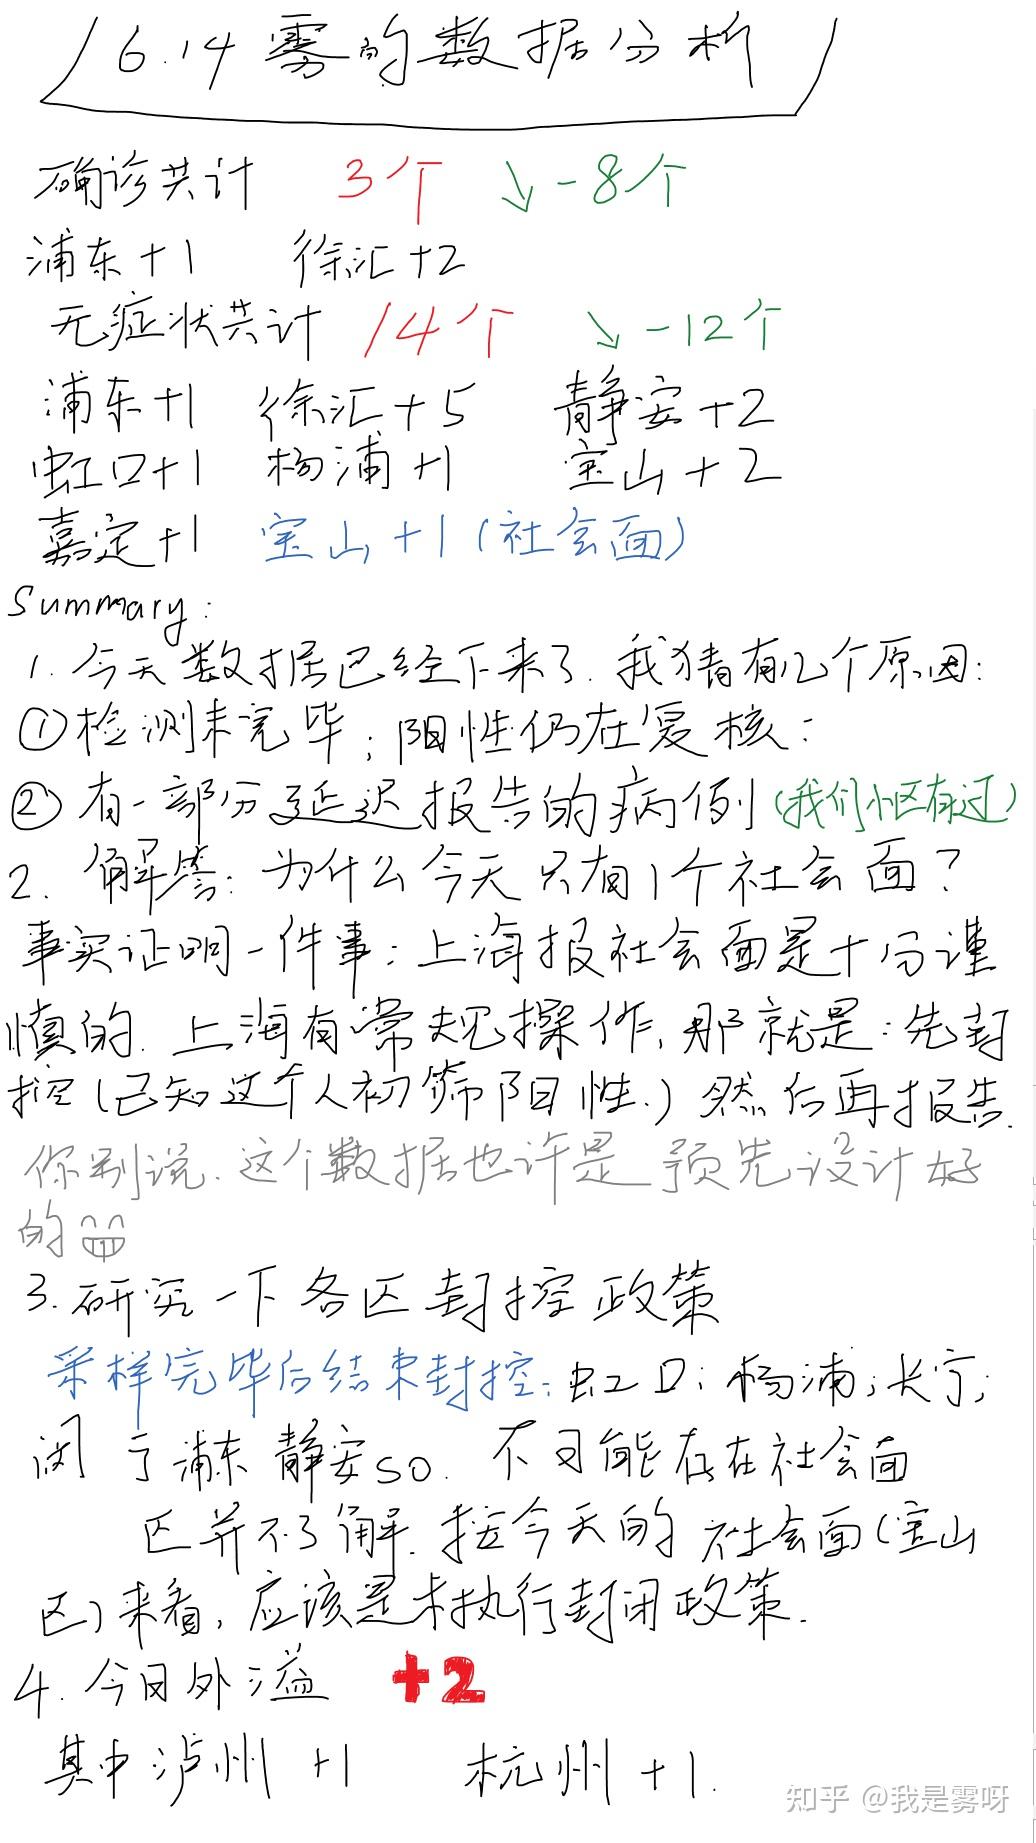 6.14 雾的数据分析
确诊共计 3个 ↘ -8个
浦东+1 徐汇+2
无症状共计 14个 ↘ -12个
浦东+1 徐汇+5 静安+2
虹口+1 杨浦+1 宝山+2
嘉定+1 宝山+1(社会面)
Summary:
1. 今天数据已经下来了. 我猜有几个原因:
①检测未完毕; 阳性仍在复核:
② 有一部分延迟报告的病例(我们小区有过)
2. 解答: 为什么今天只有1个社会面?
事实证明一件事: 上海报社会面是十分谨
慎的. 上海有常规操作, 那就是: 先封
控(已知这个人初筛阳性.) 然后再报告.
你别说. 这个数据也许是预先设计好
的
3. 研究一下各区封控政策
采样完毕后结束封控: 虹口; 杨浦; 长宁;
闵 浦东 静安 so. 不可能存在社会面
区并不了解. 按今天的社会面(宝山
区)来看, 应该是未执行封闭政策.
4. 今日外溢 +2
其中泸州 +1 杭州 +1.
知乎 @我是雾呀